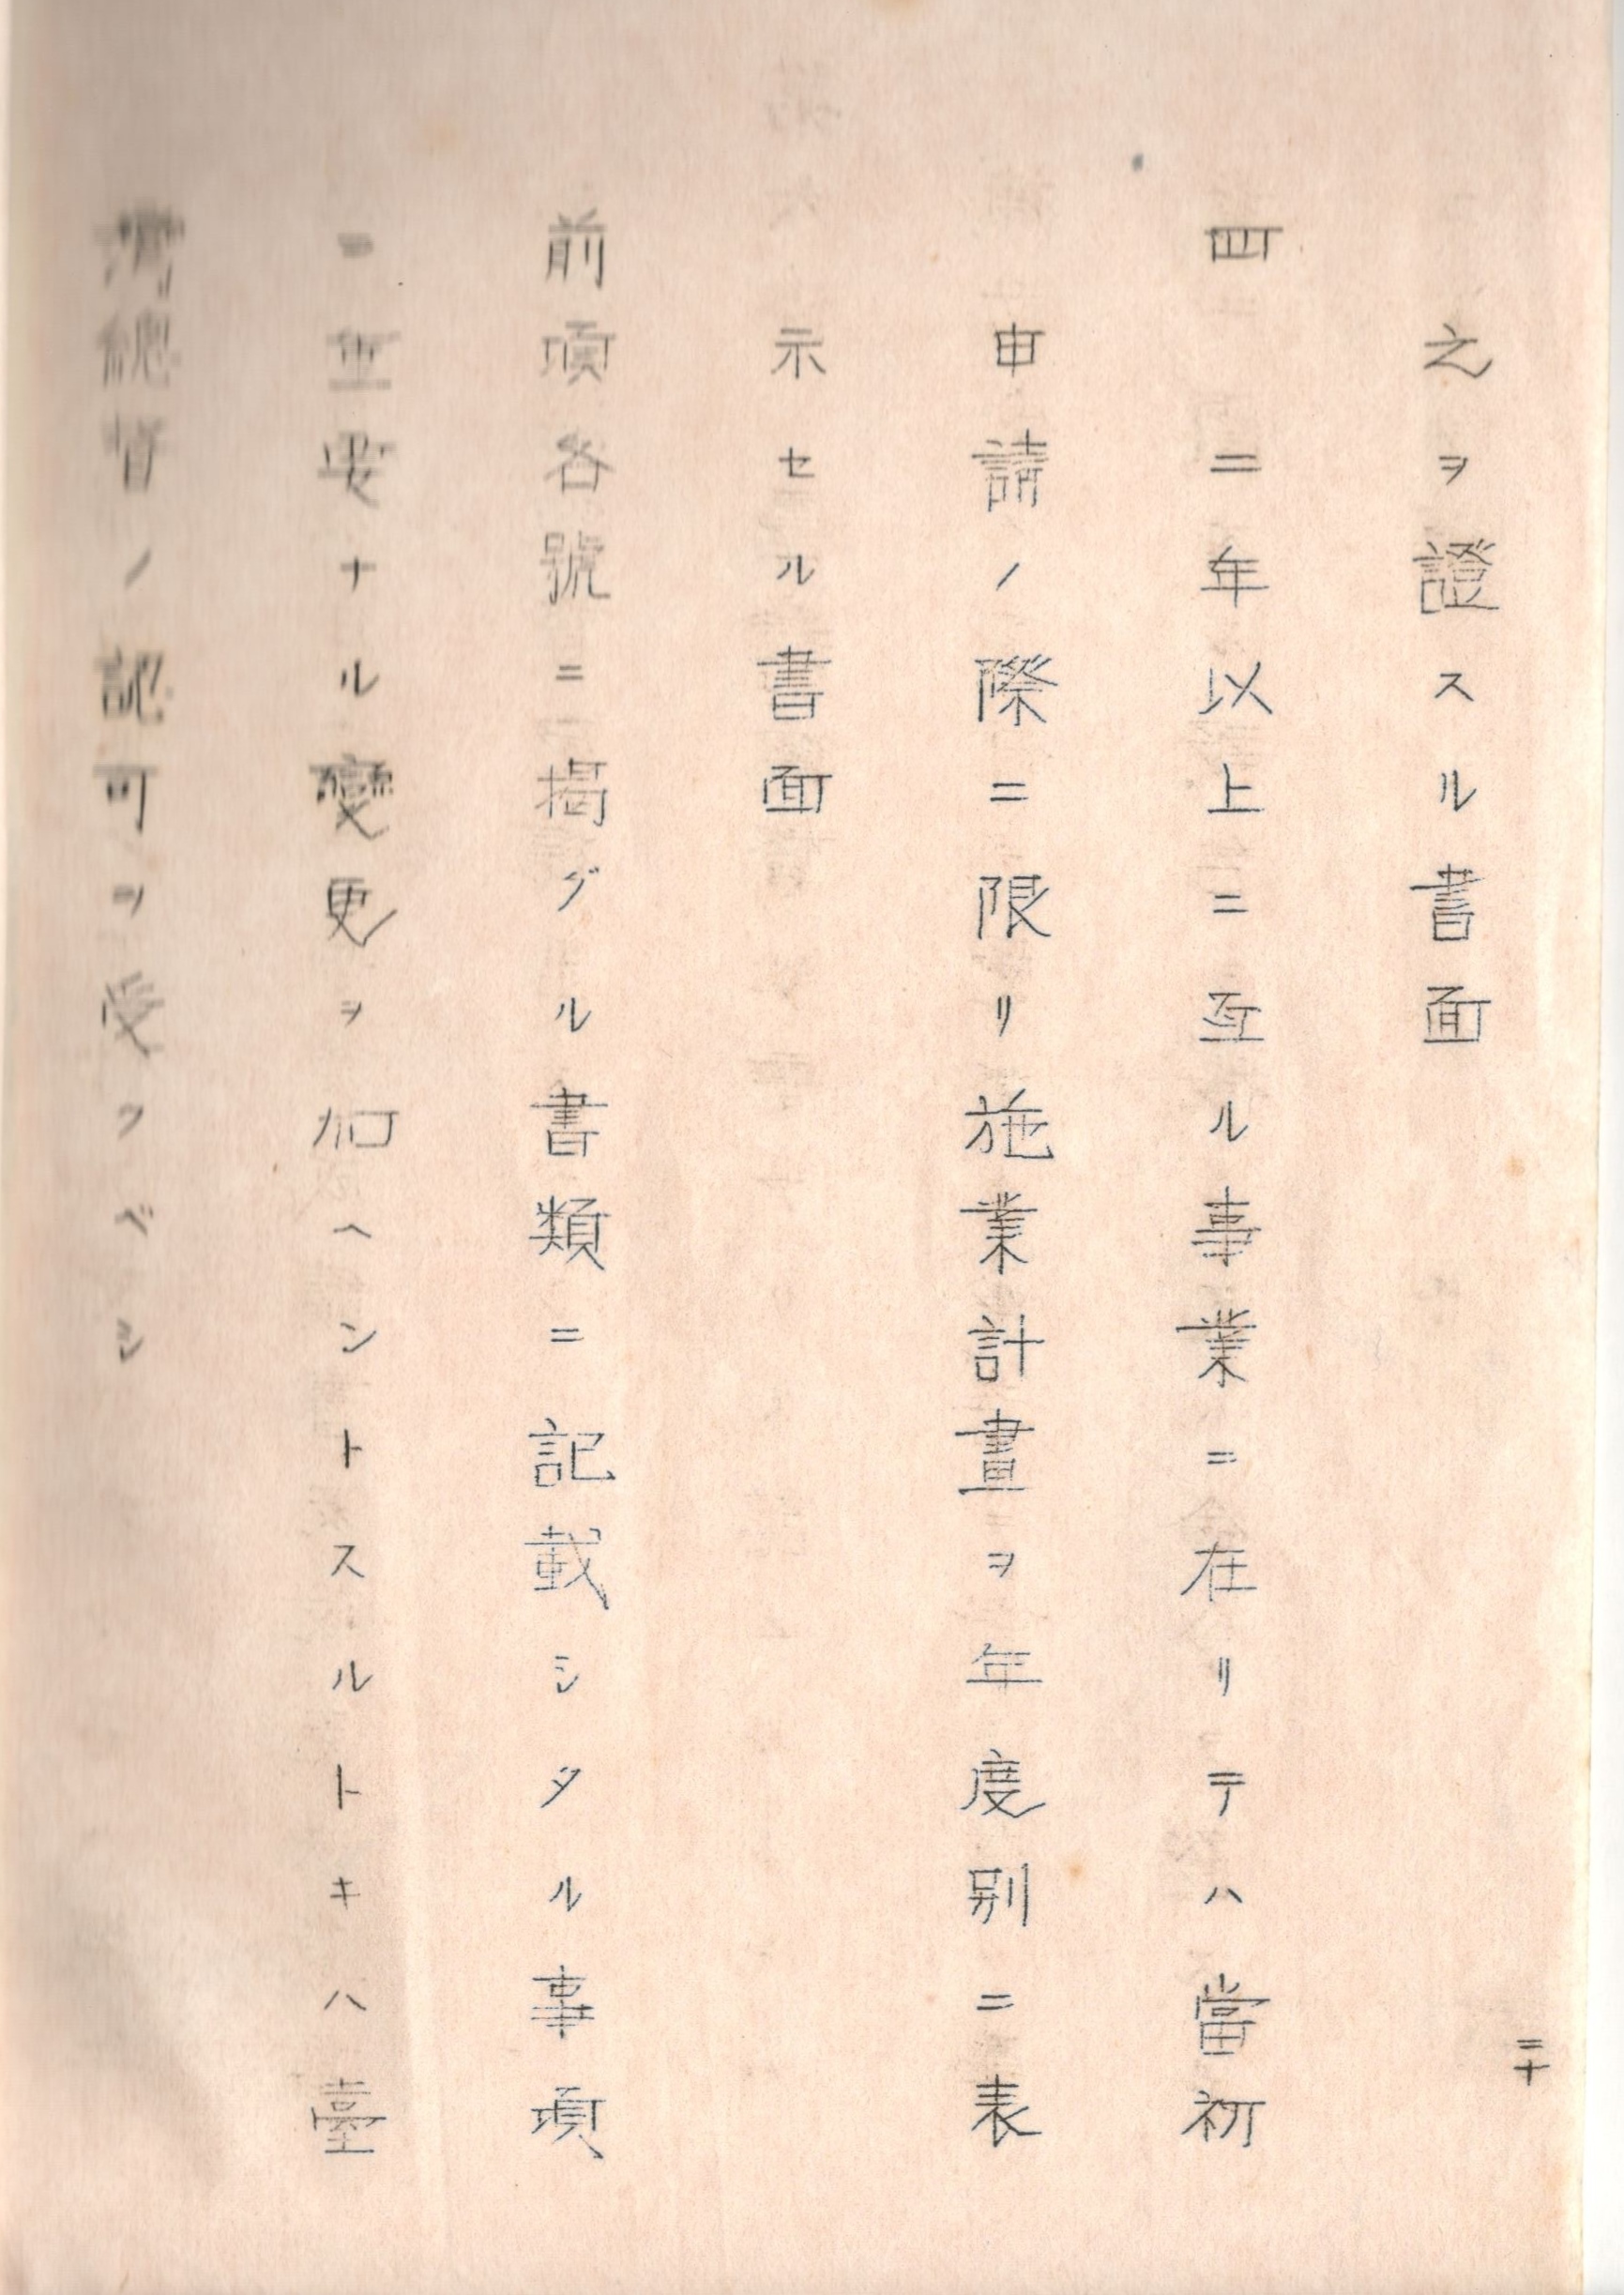 二十
之ヲ證スル書面
四　二年以上ニ亙ル事業ニ在リテハ當初
申請ノ際ニ限リ施業計畫ヲ年度別ニ表
示セル書面
前項各號ニ掲グル書類ニ記載シタル事項
ニ重要ナル變更ヲ加ヘントスルトキハ臺
灣總督ノ認可ヲ受クベシ